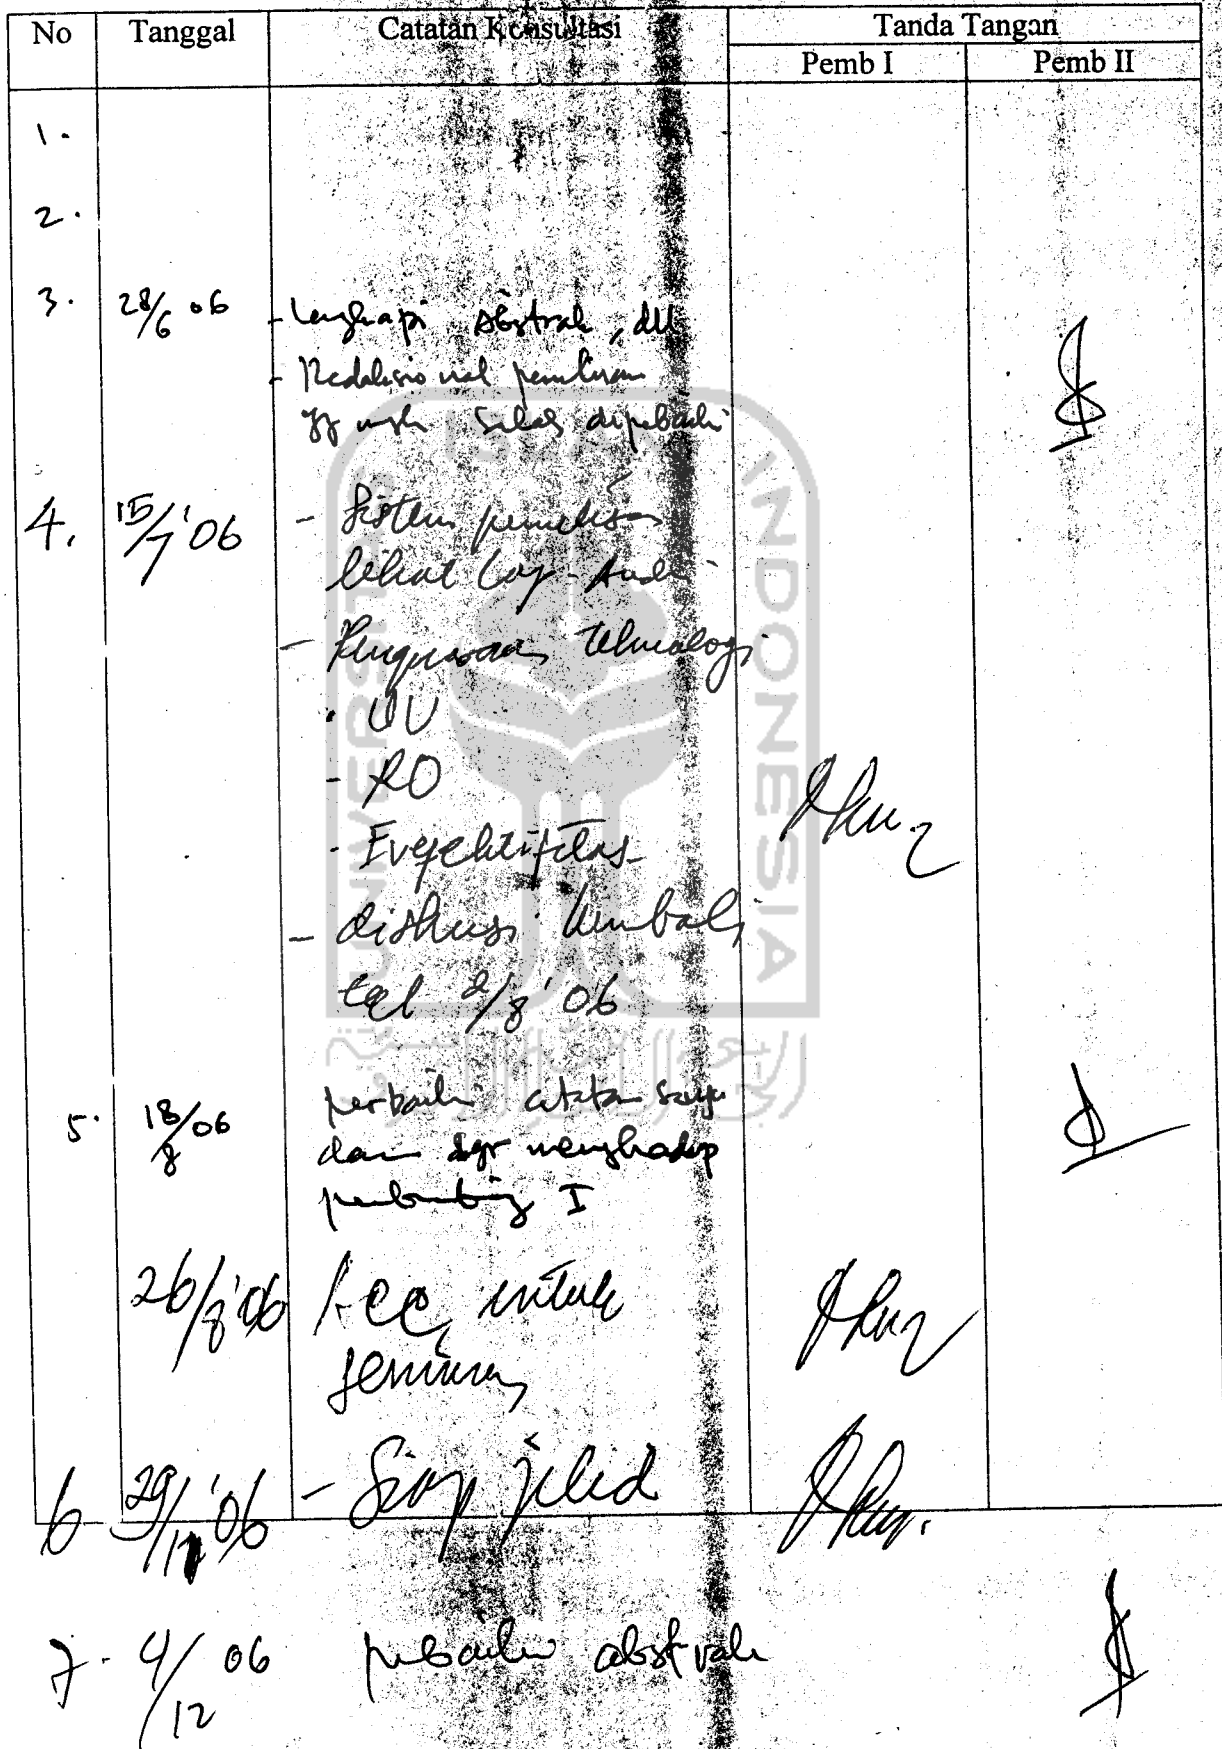 No Tanggal Catatan Konsultasi Tanda Tangan
Pemb I Pemb II
1.
2.
3. 28/6 06 - Lengkapi Abstrak, dll
- Redaksional penulisan
yg msh salah diperbaiki
4. 15/7 '06 - Sistem
lihat Lap.
- Penggunaan tehnologi
- UU
- RO
- Evefektifitas
- diskusi kembali
tgl 2/8 '06
5. 18/8 06 perbaiki catatan saya
dan sgr menghadap
pembimbing I
26/8 '06 Acc untuk
seminar
6 29/11 '06 - Siap jilid
7. 4/12 06 perbaiki abstrak
UNIVERSITAS ISLAM INDONESIA